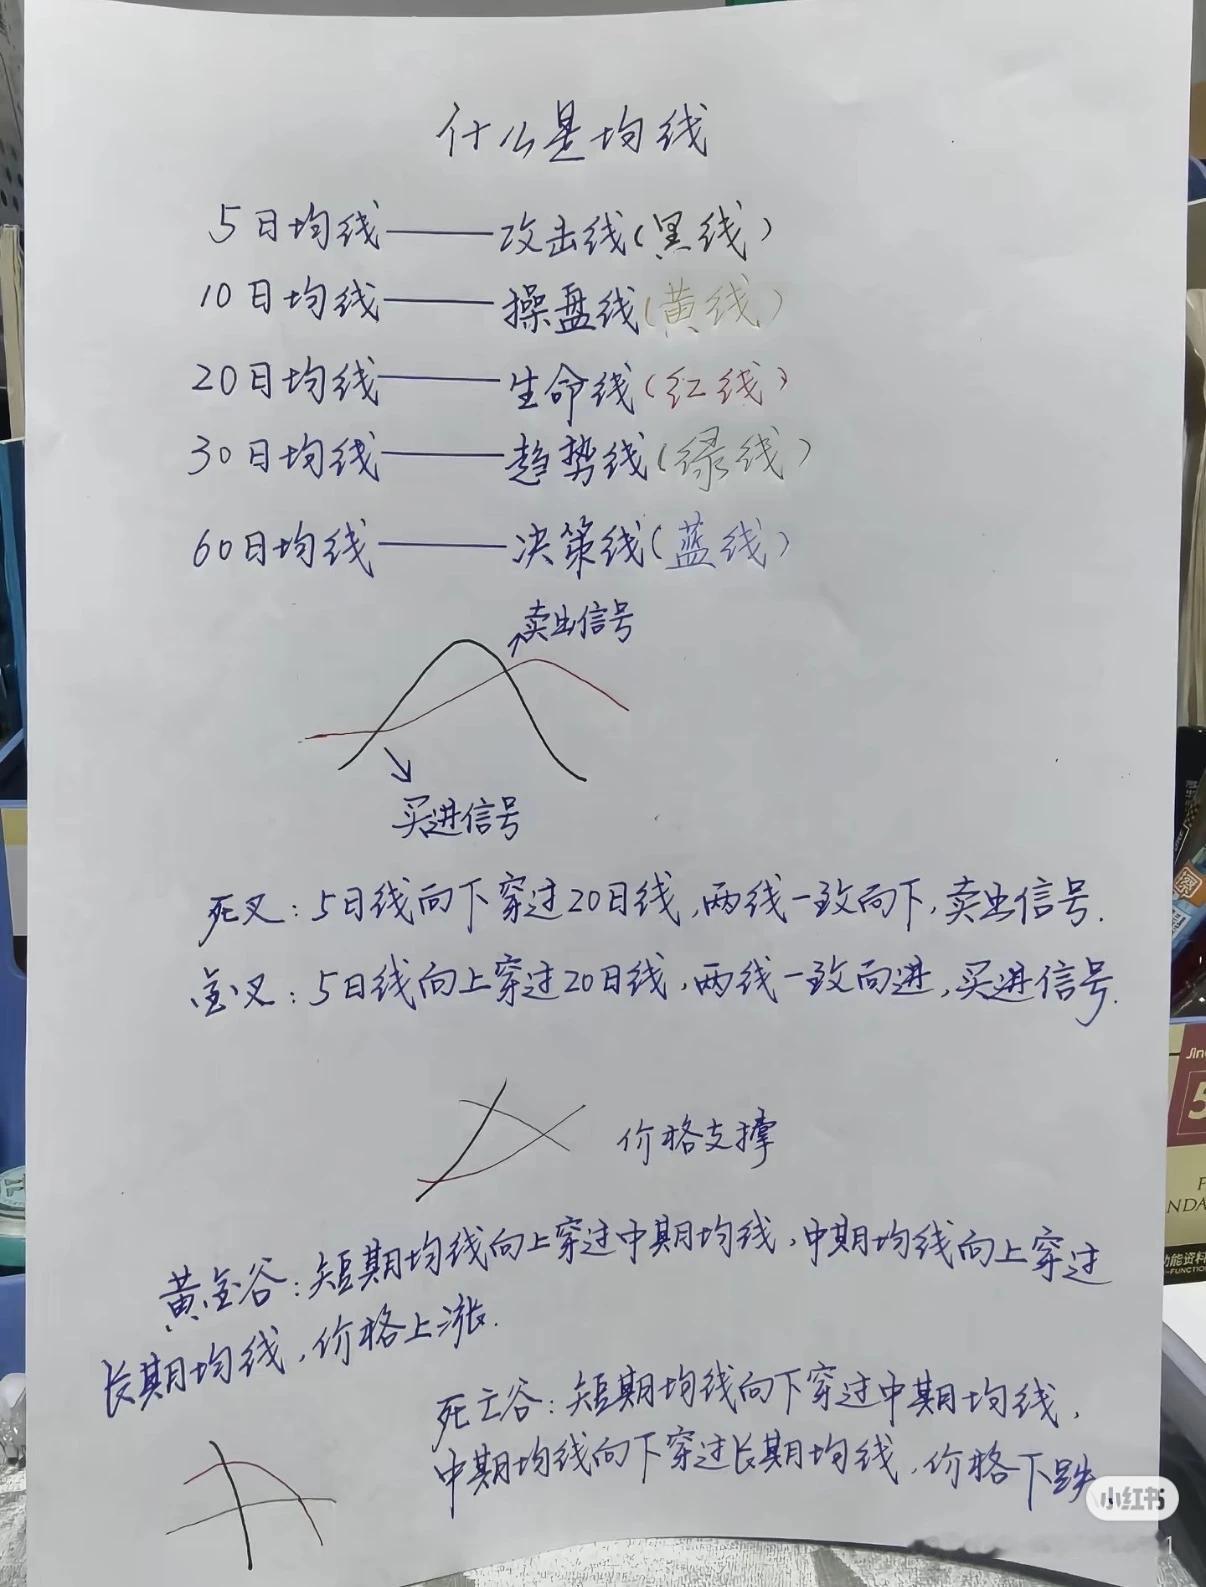 什么是均线
5日均线——攻击线(黑线)
10日均线——操盘线(黄线)
20日均线——生命线(红线)
30日均线——趋势线(绿线)
60日均线——决策线(蓝线)
卖出信号
买进信号
死叉:5日线向下穿过20日线,两线一致向下,卖出信号.
金叉:5日线向上穿过20日线,两线一致向进,买进信号.
价格支撑
黄金谷:短期均线向上穿过中期均线,中期均线向上穿过
长期均线,价格上涨.
死亡谷:短期均线向下穿过中期均线,
中期均线向下穿过长期均线,价格下跌
小红书
1
Jin
5
F
NDA
功能资料
-FUNCTION